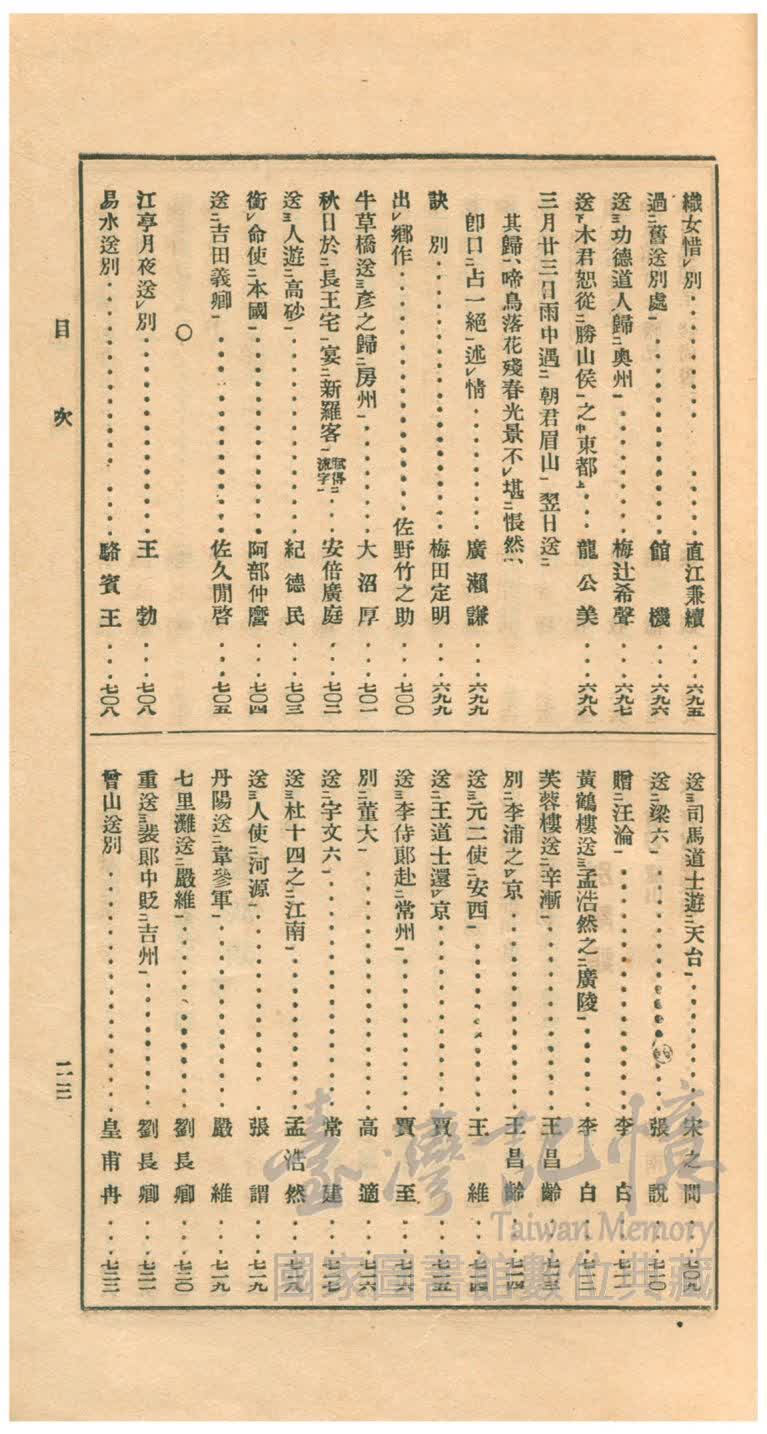 織女惜レ別……直江兼續…六九五
過二舊送別處一……館機…六九六
送三功德道人歸二奧州一……梅辻希聲…六九七
送下木君恕從二勝山侯一之中東都上…龍公美…六九八
三月廿三日雨中遇二朝君眉山一翌日送二
其歸一、啼鳥落花殘春光景不レ堪二悵然一、
卽口二占一絕一述レ情……廣瀨謙…六九九
訣別……梅田定明…六九九
出レ鄉作……佐野竹之助…七〇〇
牛草橋送三彥之歸二房州一……大沼厚…七〇一
秋日於二長王宅一宴二新羅客一賦得二流字一…安倍廣庭…七〇二
送三人遊二高砂一……紀德民…七〇三
銜レ命使二本國一……阿部仲麿…七〇四
送二吉田義卿一……佐久間啓…七〇五
〇
江亭月夜送レ別……王勃…七〇八
易水送別……駱賓王…七〇八
送三司馬道士遊二天台一……宋之問…七〇九
送二梁六一……張說…七一〇
贈二汪淪一……李白…七一一
黃鶴樓送三孟浩然之二廣陵一……李白…七一二
芙蓉樓送二辛漸一……王昌齡…七一三
別二李浦之一レ京……王昌齡…七一四
送三元二使二安西一……王維…七一四
送二王道士還一レ京……賈至…七一五
送三李侍郞赴二常州一……賈至…七一六
別二董大一……高適…七一六
送二宇文六一……常建…七一七
送三杜十四之二江南一……孟浩然…七一八
送三人使二河源一……張謂…七一九
丹陽送二韋參軍一……嚴維…七一九
七里灘送二嚴維一……劉長卿…七二〇
重送三裴郞中貶二吉州一……劉長卿…七二一
曾山送別……皇甫冉…七二二
目次
一三
臺灣記憶
Taiwan Memory
國家圖書館數位典藏